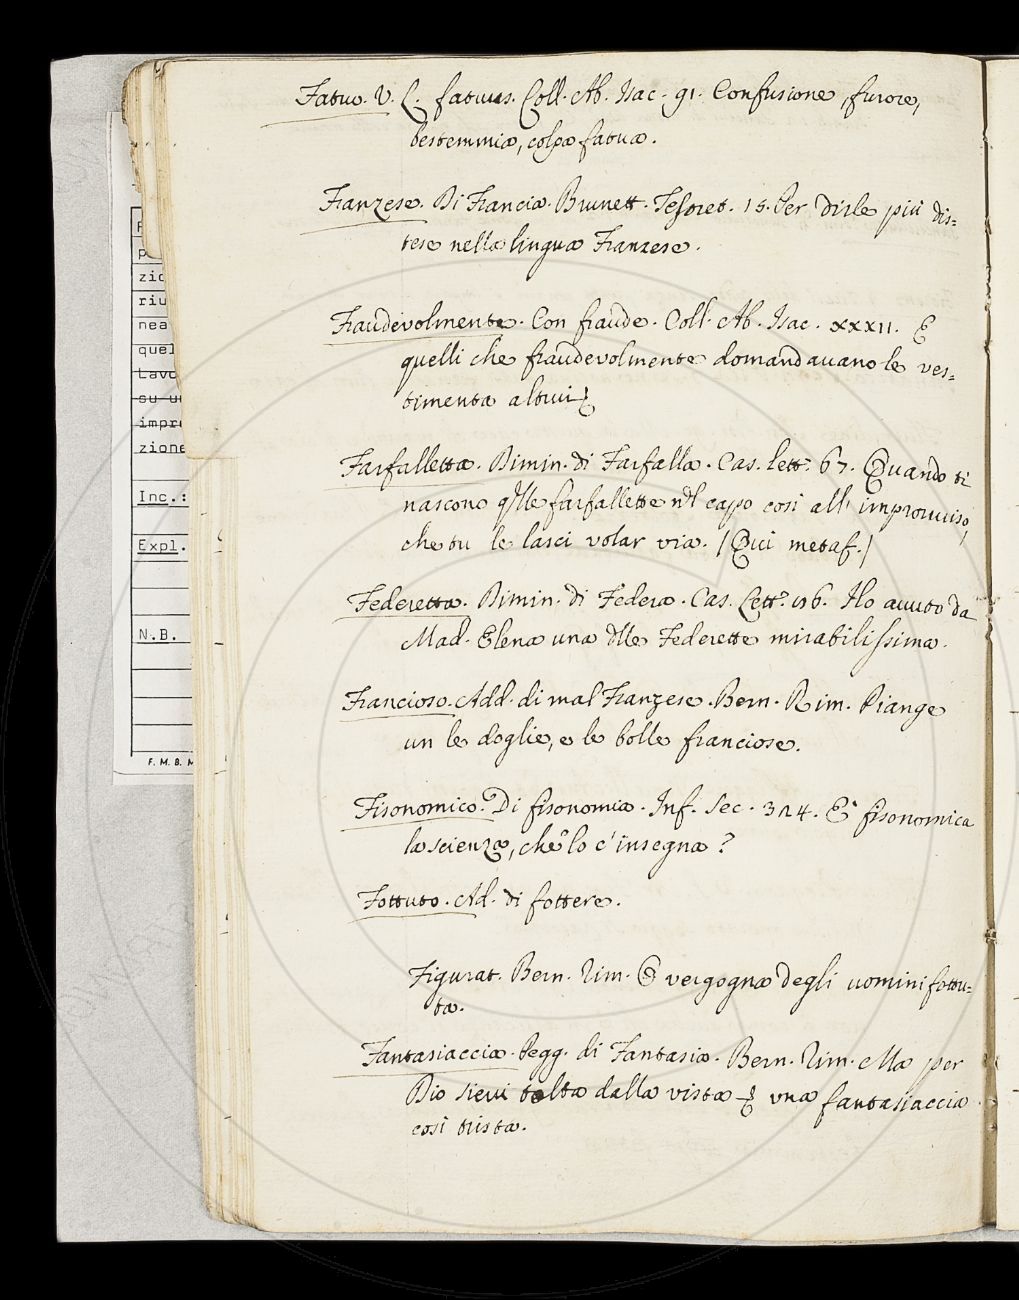 Fatuo. V. L. fatuus. Coll. Ab. Isac. 91. Confusione, furore,
bestemmia, colpa fatua.
Franzese. Di Francia. Brunett. Tesoret. 15. Per dirle più dis=
tese nella lingua Franzese.
Fraudevolmente. Con fraude. Coll. Ab. Isac. XXXII. E
quelli che fraudevolmente domandavano le ves=
timenta altrui
Farfalletta. Dimin. di Farfalla. Cas. lett. 67. Quando ti
nascono q.lle farfallette n.l capo così all' improvviso,
che tu le lasci volar via. /Qui metaf./
Federetta. Dimin. di Federa. Cas. Lett. Ho avuto da
Mad. Elena una d.lle Federette mirabilissima.
Francioso. Add. di mal Franzese. Bern. Rim. Piange
un le doglie, e le bolle franciose.
Fisonomico. Di fisonomia. Inf. Sec. 324. E' fisonomica
la scienza, che lo c'insegna?
Fottuto. Ad. di fottere.
Figurat. Bern. Rim. O vergogna degli uomini fottu=
ta.
Fantasiaccia. Pegg. di Fantasia. Bern. Rim. Ma per
Dio sievi tolta dalla vista una fantasiaccia
così trista.
zio
riu
nea
quel
Lavo
su u
impre
zione
Inc.:
Expl.
N.B.
F. M. B. M